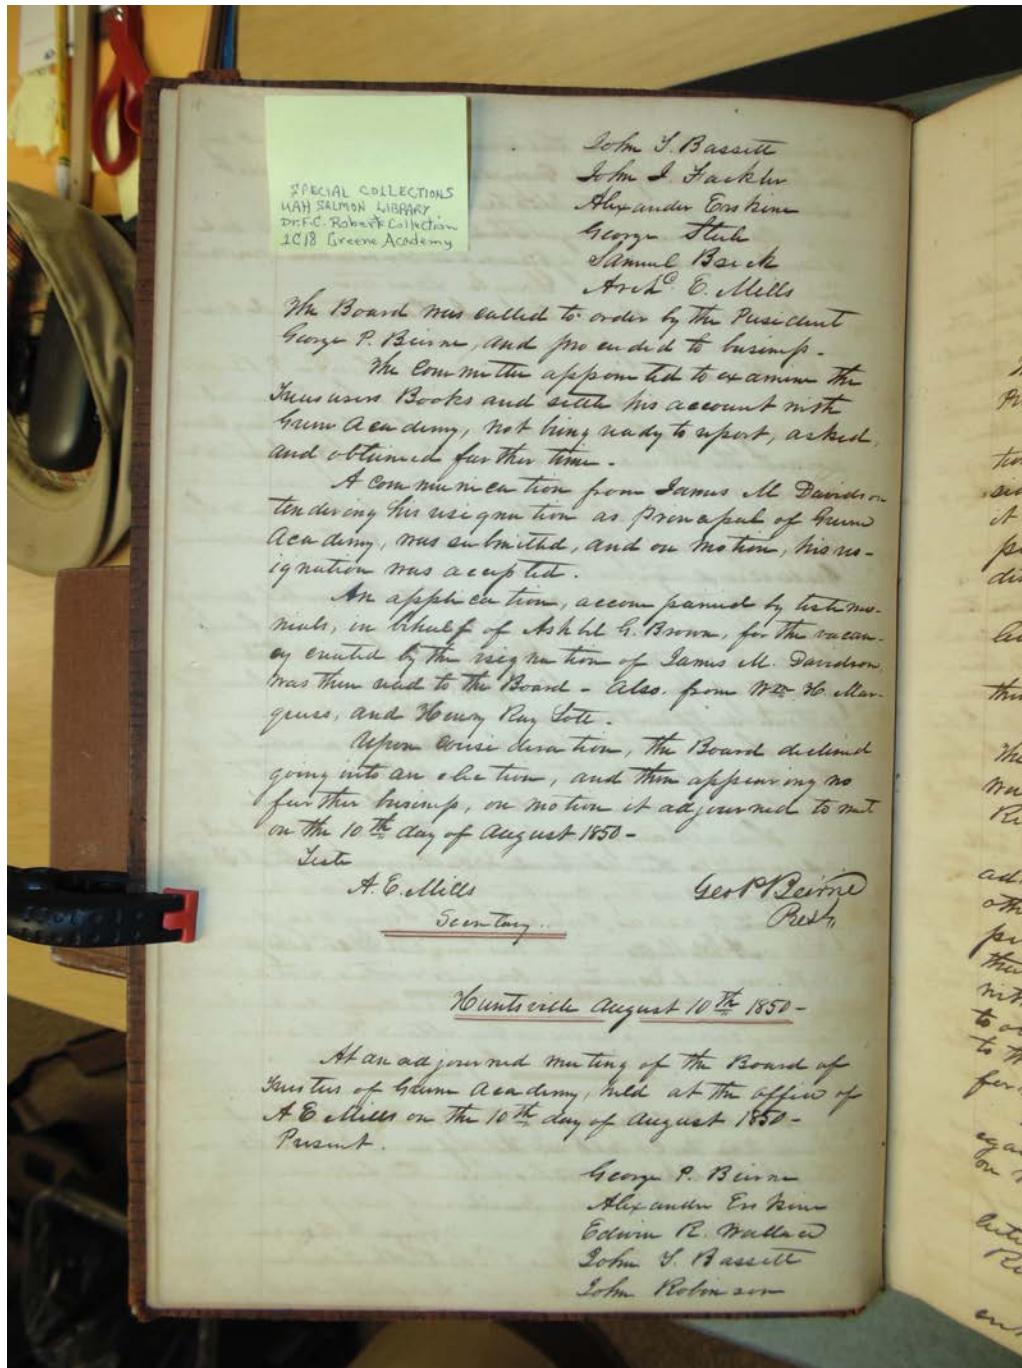 SPECIAL COLLECTIONS
UAH SALMON LIBRARY
Dr. F.C. Roberts Collection
2C18 Greene Academy
John Y. Bassett
John I. Fackler
Alexander Erskine
George Steele
Samuel Breck
Archd. E. Mills
The Board was called to order by the President
George P. Beirne, and proceeded to business.
The Committee appointed to examine the
Treasurers Books and settle his account with
Green Academy, not being ready to report, asked,
and obtained further time.
A communication from James M Davidson
tendering his resignation as Principal of Green
Academy, was submitted, and on motion, his res-
ignation was accepted.
An application, accompanied by testimo-
nials, in behalf of Ashbel G. Brown, for the vacan-
cy created by the resignation of James M. Davidson,
was then read to the Board - Also. from Wm. H. Mar-
quess, and Henry Ray
Upon consideration, the Board declined
going into an election, and there appearing no
further business, on motion it adjourned to meet
on the 10th day of August 1850 -
Teste
A. E. Mills
Geo P Beirne
Secretary..
Prest,
Huntsville August 10th 1850 -
At an adjourned meeting of the Board of
Trustees of Green Academy, held at the office of
A E Mills on the 10th day of August 1850 -
Present.
George P. Beirne
Alexander Erskine
Edwin R. Wallace
John Y. Bassett
John Robinson